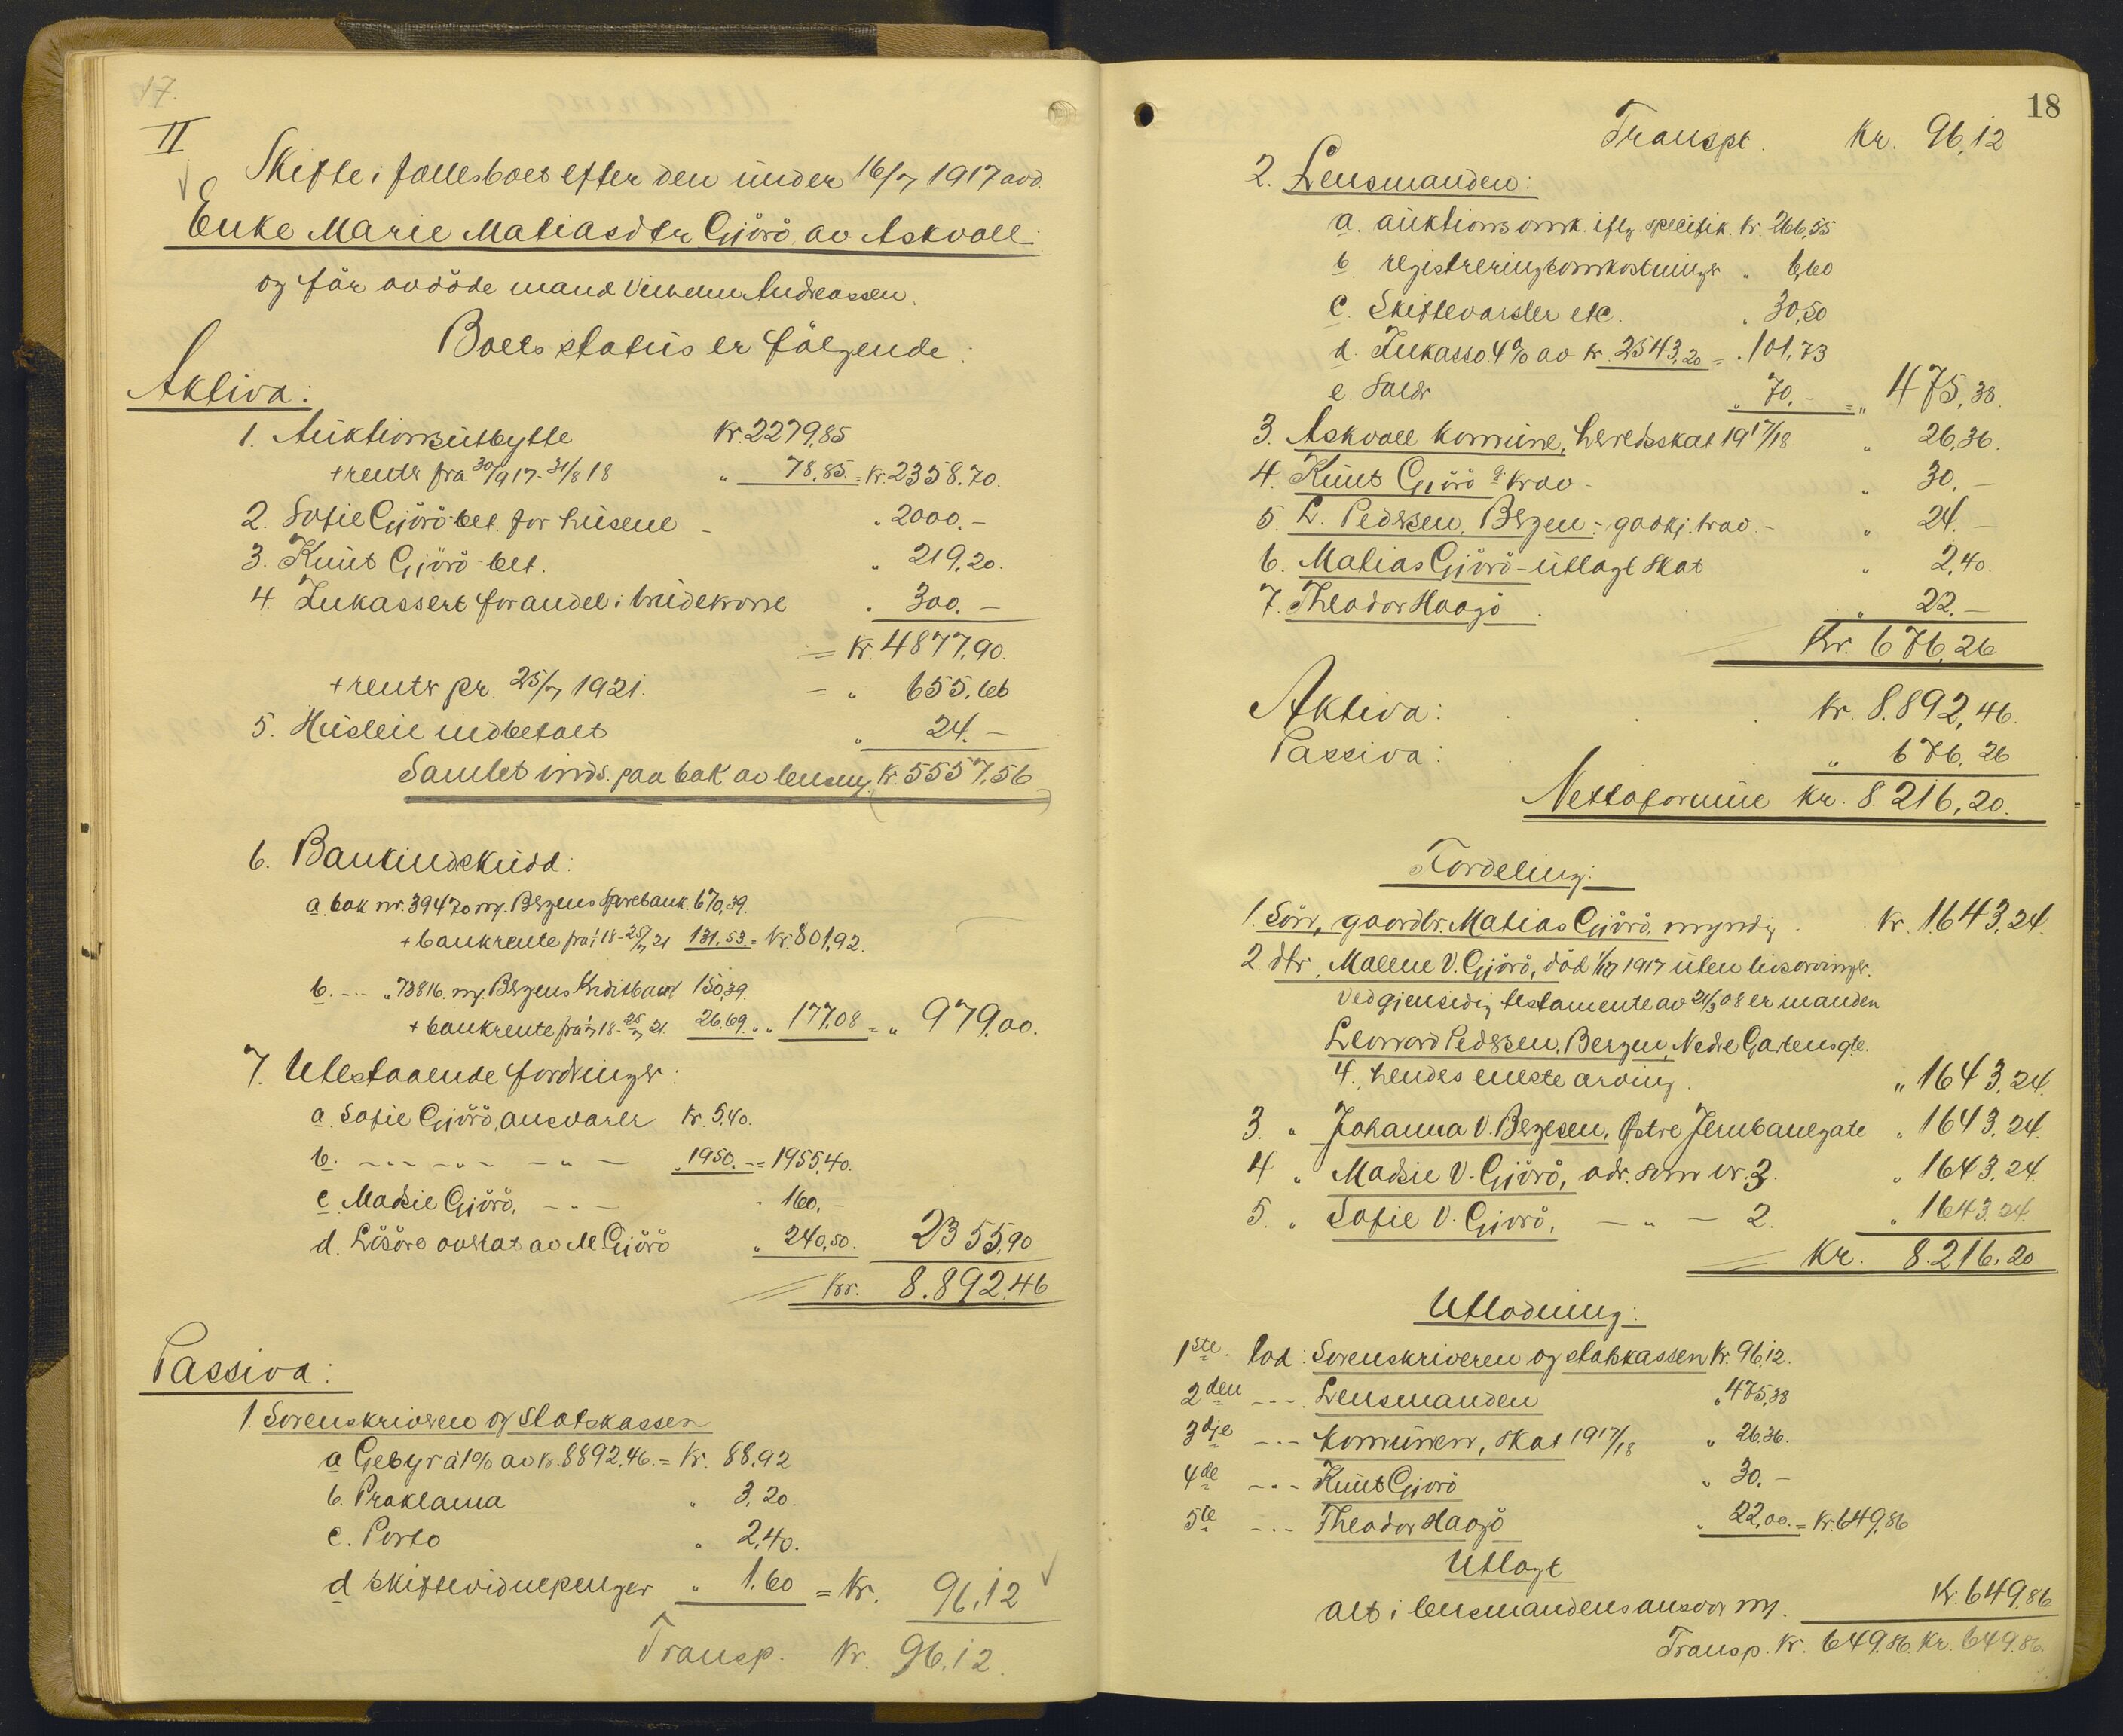 17.
II
Skifte i fællesboet efter den under 16/7 1917 avd.
Enke Marie Matiasdtr Gjörö av Askvoll
og før avdöde mand Vilhelm Andreassen.
Boets status er fölgende:
Aktiva:
1. Auktionsutbytte kr. 2279,85
+ rente fra 30/9 17 - 31/8 18 " 78,85. = kr. 2358.70.
2. Sofie Gjörö bet. for husene - " 2000.-
3. Knut Gjörö bet. " 219,20.
4. Inkassert for andel i brudekrone " 300.-
= kr. 4877,90.
+ rente pr. 25/7 1921. = " 655.66
5. Husleie indbetalt " 24.-
Samlet inds. paa bok av lensm. (kr. 5557,56)
6. Bankindskudd:
a. bok nr. 39470 m/ Bergens Sparebank. 670,39.
+ bankrente fra 1/1 18 - 25/7 21 131,53. = kr. 801,92.
b. -"- " 73816 m/ Bergens Kreditbank 150,39.
+ bankrente fra 1/7 18 - 25/7 21. 26,69. " " 177,08 = " 979,00.
7. Utestaaende fordringer:
a. Sofie Gjörö, ansvarer kr. 5,40.
b. -"- -"- -"- " 1950.- = 1955,40.
c. Madsie Gjörö, -"- " 160.-
d. Lösöre overtat av M. Gjörö " 240,50. 2355,90
= kr. 8.892,46
Passiva:
1. Sorenskriveren og statskassen
a. Gebyr à 1% av kr. 8892,46. = kr. 88,92
b. Proklama " 3,20.
c. Porto " 2,40.
d. skiftevidnepenger " 1,60 = kr. 96,12
Transp. kr. 96,12.
18
Transpt. kr. 96,12
2. Lensmanden:
a. auktionsomk. iflg. specifik. kr. 266,55
b. registreringsomkostninger " 6,60
c. Skiftevarsler etc. " 30,50
d. Inkasso. 4% av kr. 2543,20 = " 101,73
e. Salær " 70.- = " 475,38.
3. Askvoll komune, herredsskat 1917/18 " 26,36.
4. Knut Gjörö g. krav - " 30.-
5. L. Pedersen, Bergen - godkj. krav. - " 24.-
6. Matias Gjörö - utlagt skat " 2,40.
7. Theodor Haagö " 22.-
kr. 676,26
Aktiva: kr. 8.892,46.
Passiva: " 676,26
Nettoformue kr. 8.216,20.
Fordeling:
1. Sön, gaardbr. Matias Gjörö, myndig kr. 1643,24.
2. dtr. Malene V. Gjörö, död 1917 uten livsarvinger.
Ved gjensidig testamente av 21/3 08 er manden
Leonard Pedersen, Bergen, Nedre Gartensgt.
4., hendes eneste arving. " 1643,24.
3. " Johanna V. Bergesen, Östre Jernbanegate " 1643,24.
4 " Madsie V. Gjörö, adr. som nr. 3. " 1643,24.
5. " Sofie V. Gjörö, - " - 2. " 1643.24.
= kr. 8.216,20
Utlodning:
1ste. lod: Sorenskriveren og statskassen kr. 96,12.
2den -"- Lensmanden " 475,38
3dje -"- komunen, skat 1917/18 " 26,36.
4de -"- Knut Gjörö " 30.-
5te -"- Theodor Haagö " 22,00. = kr. 649,86
Utlagt
alt i lensmandens ansvar m/. kr. 649,86
Transp. kr. 649.86. kr. 649.86.